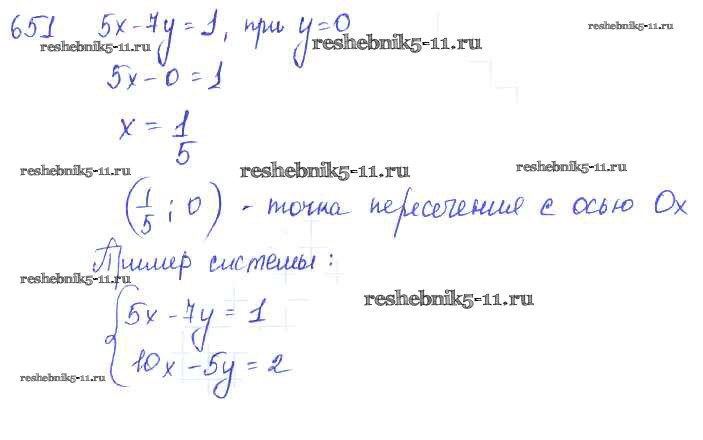 651 5x-7y=1, при y=0
reshebnik5-11.ru
reshebnik5-11.ru reshebnik5-11.ru
5x-0=1
x = 1/5
reshebnik5-11.ru reshebnik5-11.ru reshebnik5-11.ru
(1/5; 0) - точка пересечения с осью Ox
Пример системы:
reshebnik5-11.ru
{5x-7y=1
reshebnik5-11.ru
10x-5y=2
reshebnik5-11.ru